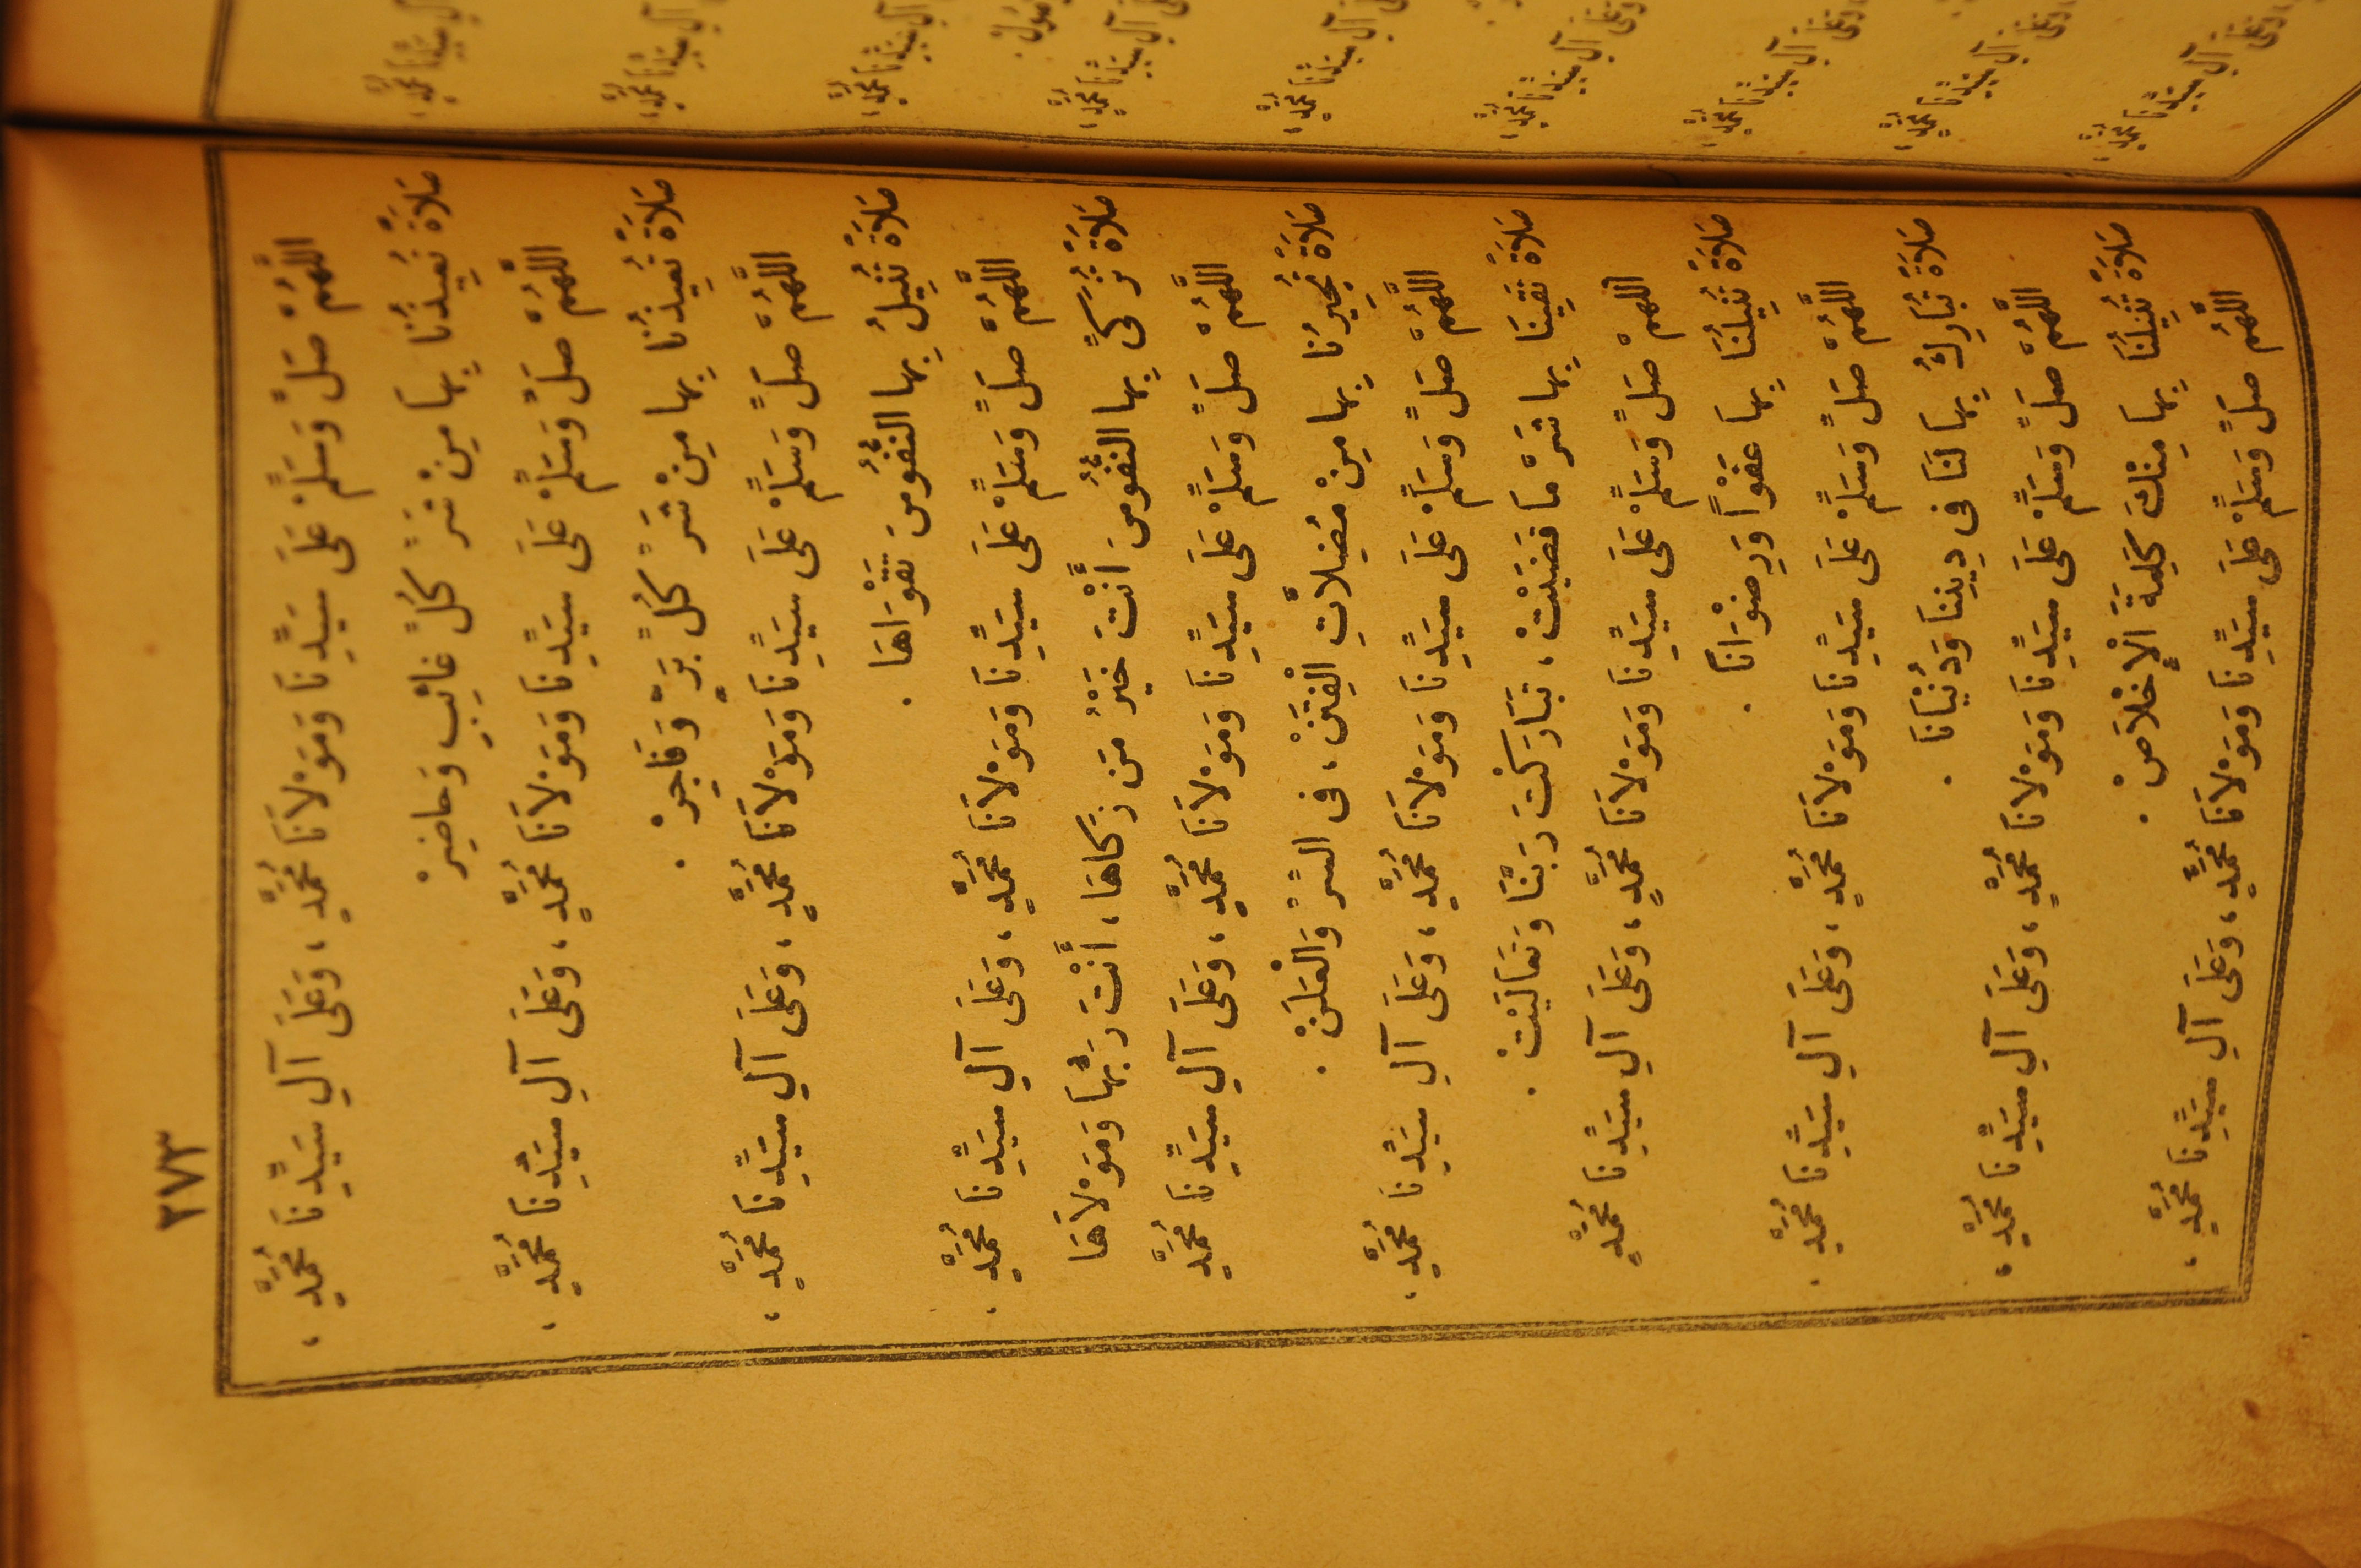 ٢٧٣
اللَّهُمَّ صَلِّ وَسَلِّمْ عَلَى سَيِّدِنَا وَمَوْلاَنَا مُحَمَّدٍ، وَعَلَى آلِ سَيِّدِنَا مُحَمَّدٍ،
صَلاَةً تُعِيذُنَا بِهَا مِنْ شَرِّ كُلِّ غَائِبٍ وَحَاضِرْ
اللَّهُمَّ صَلِّ وَسَلِّمْ عَلَى سَيِّدِنَا وَمَوْلاَنَا مُحَمَّدٍ، وَعَلَى آلِ سَيِّدِنَا مُحَمَّدٍ،
صَلاَةً تُعِيذُنَا بِهَا مِنْ شَرِّ كُلِّ بَرٍّ وَفَاجِرْ.
اللَّهُمَّ صَلِّ وَسَلِّمْ عَلَى سَيِّدِنَا وَمَوْلاَنَا مُحَمَّدٍ، وَعَلَى آلِ سَيِّدِنَا مُحَمَّدٍ،
صَلاَةً تُنِيلُ بِهَا النُّفُوسَ تَقْوَاهَا.
اللَّهُمَّ صَلِّ وَسَلِّمْ عَلَى سَيِّدِنَا وَمَوْلاَنَا مُحَمَّدٍ، وَعَلَى آلِ سَيِّدِنَا مُحَمَّدٍ،
صَلاَةً تُزَكِّى بِهَا النُّفُوسَ أَنْتَ خَيْرُ مَن زَكَّاهَا، أَنْتَ رَبُّهَا وَمَوْلاَهَا
اللَّهُمَّ صَلِّ وَسَلِّمْ عَلَى سَيِّدِنَا وَمَوْلاَنَا مُحَمَّدٍ، وَعَلَى آلِ سَيِّدِنَا مُحَمَّدٍ
صَلاَةً تُجِيرُنَا بِهَا مِنْ مُضِلاَّتِ الْفِتَنْ، فى السِّرِّ وَالْعَلَنْ.
اللَّهُمَّ صَلِّ وَسَلِّمْ عَلَى سَيِّدِنَا وَمَوْلاَنَا مُحَمَّدٍ، وَعَلَى آلِ سَيِّدِنَا مُحَمَّدٍ،
صَلاَةً تَقِينَا بِهَا شَرَّ مَا قَضَيْتْ، تَبَارَكْتَ رَبَّنَا وَتَعَالَيْتْ.
اللَّهُمَّ صَلِّ وَسَلِّمْ عَلَى سَيِّدِنَا وَمَوْلاَنَا مُحَمَّدٍ، وَعَلَى آلِ سَيِّدِنَا مُحَمَّدٍ
صَلاَةً تُنِيلُنَا بِهَا عَفْوًا وَرِضْوَانًا.
اللَّهُمَّ صَلِّ وَسَلِّمْ عَلَى سَيِّدِنَا وَمَوْلاَنَا مُحَمَّدٍ، وَعَلَى آلِ سَيِّدِنَا مُحَمَّدٍ.
صَلاَةً تُبَارِكُ بِهَا لَنَا فى دِينِنَا وَدُنْيَانَا.
اللَّهُمَّ صَلِّ وَسَلِّمْ عَلَى سَيِّدِنَا وَمَوْلاَنَا مُحَمَّدٍ، وَعَلَى آلِ سَيِّدِنَا مُحَمَّدٍ،
صَلاَةً تُنِيلُنَا بِهَا مِنْكَ كَلِمَةَ الْإِخْلاَصْ.
اللَّهُمَّ صَلِّ وَسَلِّمْ عَلَى سَيِّدِنَا وَمَوْلاَنَا مُحَمَّدٍ، وَعَلَى آلِ سَيِّدِنَا مُحَمَّدٍ،